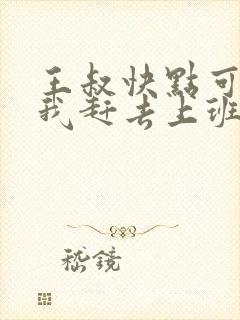 王叔快點可
我赶去上班
嵇鏡